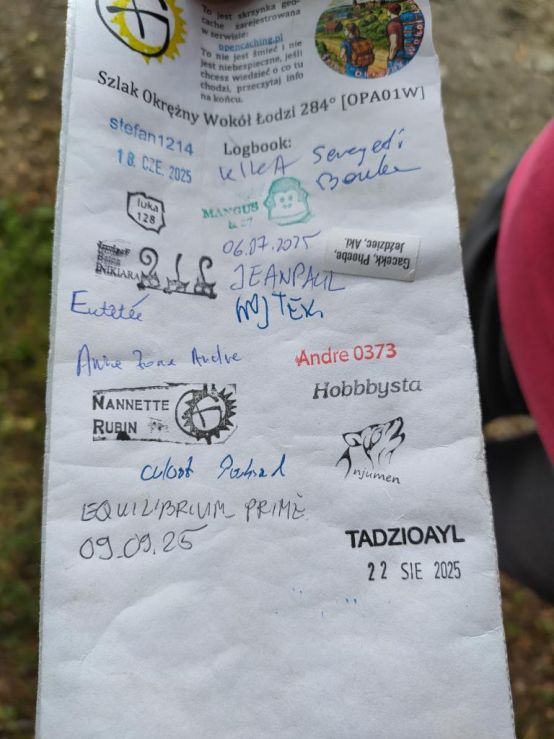 To jest skrzynka geo-
cache zarejestrowana
w serwisie:
opencaching.pl
To nie jest śmieć i nie
jest niebezpieczne, jeśli
chcesz wiedzieć o co tu
chodzi, przeczytaj info
na końcu.
Szlak Okrężny Wokół Łodzi 284° [OPA01W]
Logbook:
stefan1214
18. CZE. 2025
KIKA
luka
128
MANGUS
& 27
06.07.2025
JEANPAUL
Gacekk, Phoebe,
Jeździec, Aki.
INIKIARA
WOJTEK
Anne Zone Andre
Andre 0373
Hobbbysta
NANNETTE
RUBIN
njumen
EQUILIBRIUM PRIME
09.09.25
TADZIOAYL
22 SIE 2025